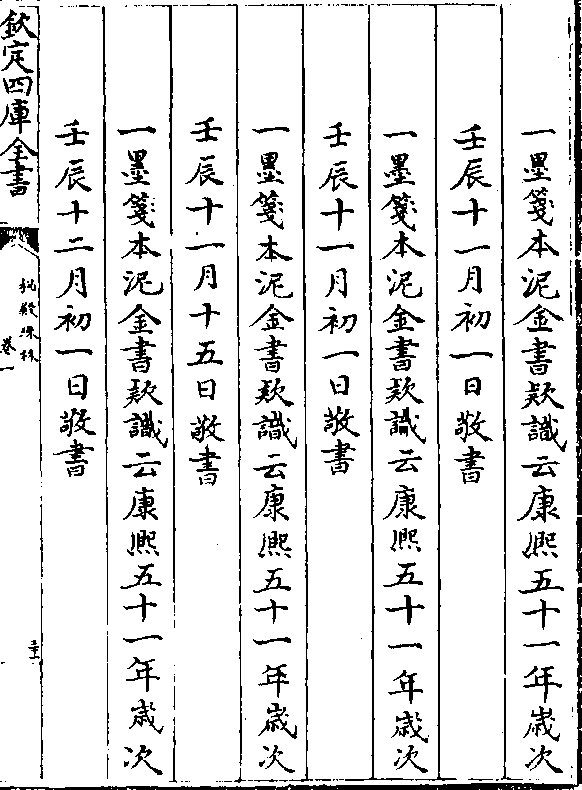 一墨箋本泥金書款識云康熈五十一年歲次
壬辰十一月初一日敬書
一墨箋本泥金書款識云康熈五十一年歲次
壬辰十一月初一日敬書
一墨箋本泥金書款識云康熈五十一年歲次
壬辰十一月十五日敬書
一墨箋本泥金書款識云康熈五十一年歲次
壬辰十二月初一日敬書
欽定四庫全書
秘殿珠林
卷一